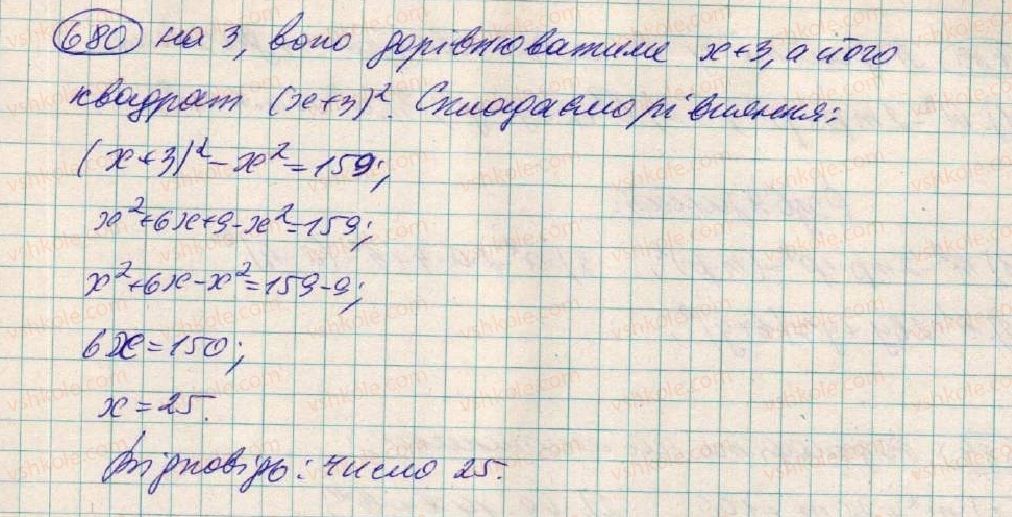 680 на 3, воно дорівнюватиме x+3, а його
квадрат (x+3)². Складаємо рівняння:
(x+3)² - x² = 159;
x² + 6x + 9 - x² = 159;
x² + 6x - x² = 159 - 9;
6x = 150;
x = 25.
Відповідь: число 25.
vshkole.com